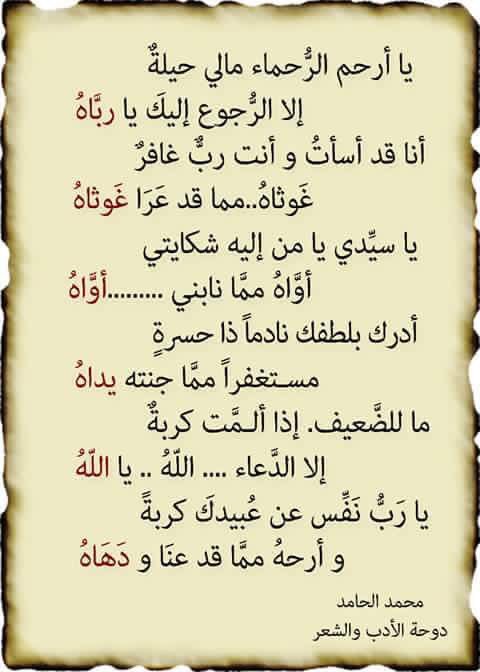 يا أرحم الرُّحماء مالي حيلةٌ
إلا الرُّجوع إليكَ يا ربَّاهُ
أنا قد أسأتُ و أنت ربٌّ غافرٌ
غَوثاهُ..مما قد عَرَا غَوثاهُ
يا سيِّدي يا من إليه شكايتي
أوَّاهُ ممَّا نابني .........أوَّاهُ
أدرك بلطفك نادماً ذا حسرةٍ
مستغفراً ممَّا جنته يداهُ
ما للضَّعيف. إذا ألـمَّت كربةٌ
إلا الدَّعاء .... اللّهُ .. يا اللّهُ
يا رَبُّ نَفِّس عن عُبيدكَ كربةً
و أرحهُ ممَّا قد عنَا و دَهَاهُ
محمد الحامد
دوحة الأدب والشعر